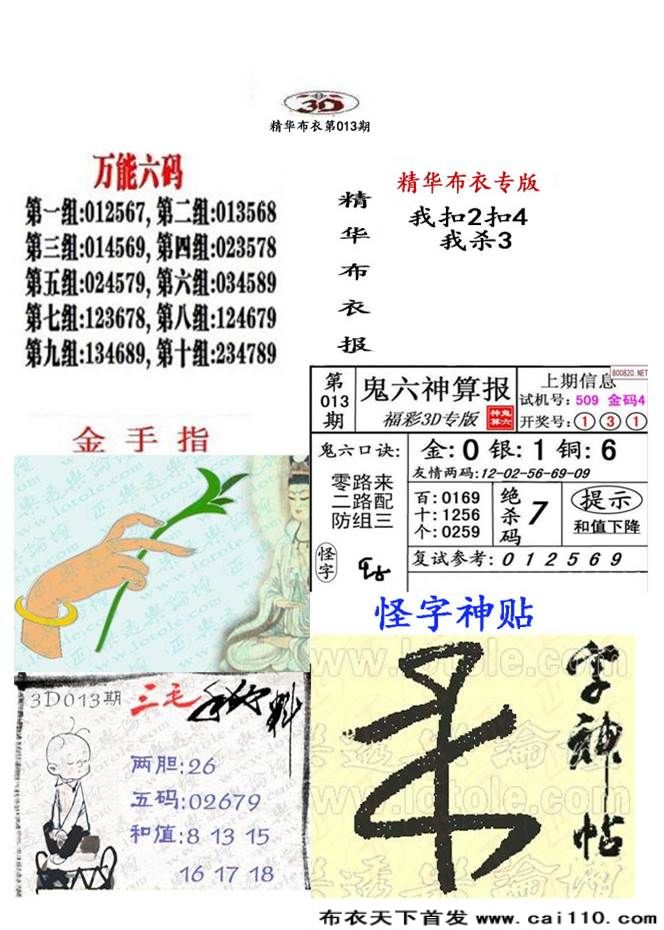 3D
精华布衣第013期
万能六码
第一组:012567,第二组:013568
第三组:014569,第四组:023578
第五组:024579,第六组:034589
第七组:123678,第八组:124679
第九组:134689,第十组:234789
精华布衣报
精华布衣专版
我扣2扣4
我杀3
金手指
第013期
鬼六神算报
福彩3D专版
神鬼算六
上期信息
800820.NET
试机号:509 金码4
开奖号:①③①
鬼六口诀:
零路来
二路配
防组三
怪字
金:0 银:1 铜:6
友情两码:12-02-56-69-09
百:0169
十:1256
个:0259
绝杀码 7
提示
和值下降
复试参考:0 1 2 5 6 9
怪字神贴
www.lotole.com
字神帖
3D013期
三毛
料
两胆:26
五码:02679
和值:8 13 15
16 17 18
布衣天下首发 www.cai110.com